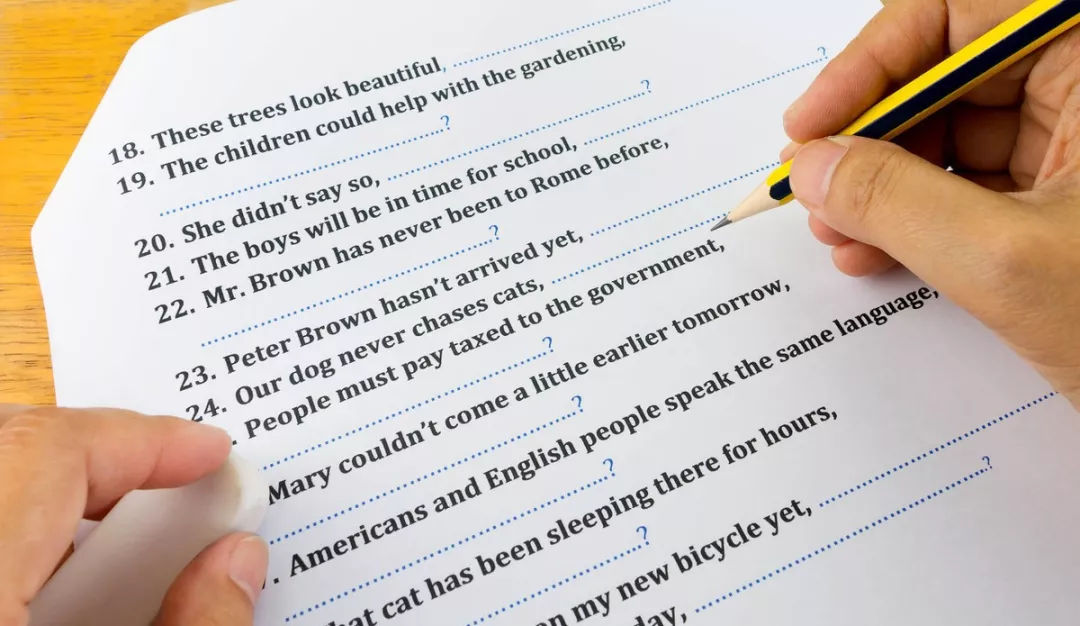 18. These trees look beautiful, ....................
19. The children could help with the gardening,
....................?
20. She didn't say so, ....................?
21. The boys will be in time for school, ....................?
22. Mr. Brown has never been to Rome before,
....................?
23. Peter Brown hasn't arrived yet, ....................
24. Our dog never chases cats, ....................
. People must pay taxed to the government,
....................?
Mary couldn't come a little earlier tomorrow,
....................?
. Americans and English people speak the same language,
....................?
cat has been sleeping there for hours,
....................?
my new bicycle yet, ....................
...................?